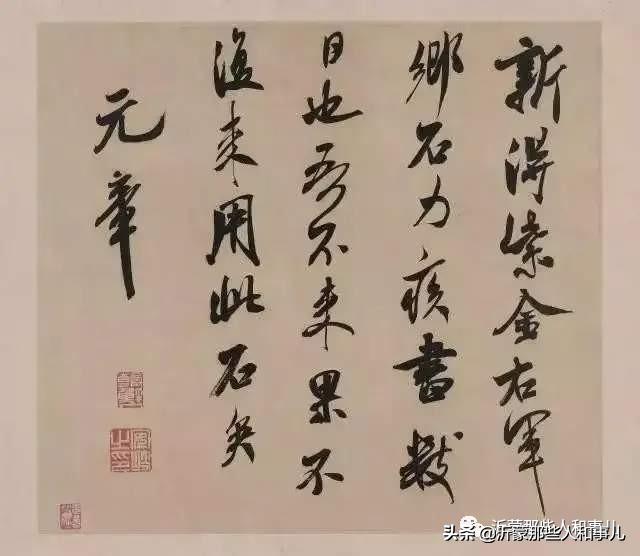 新得紫金右軍
鄉石力疾書數
日也吾不來果不
復來用此石矣
元章
沂蒙那些人和事儿
头条@沂蒙那些人和事儿